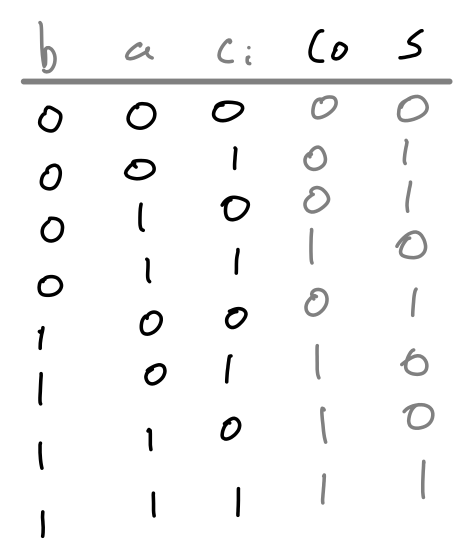 b a Ci Co S
0 0 0 0 0
0 0 1 0 1
0 1 0 0 1
0 1 1 1 0
1 0 0 0 1
1 0 1 1 0
1 1 0 1 0
1 1 1 1 1